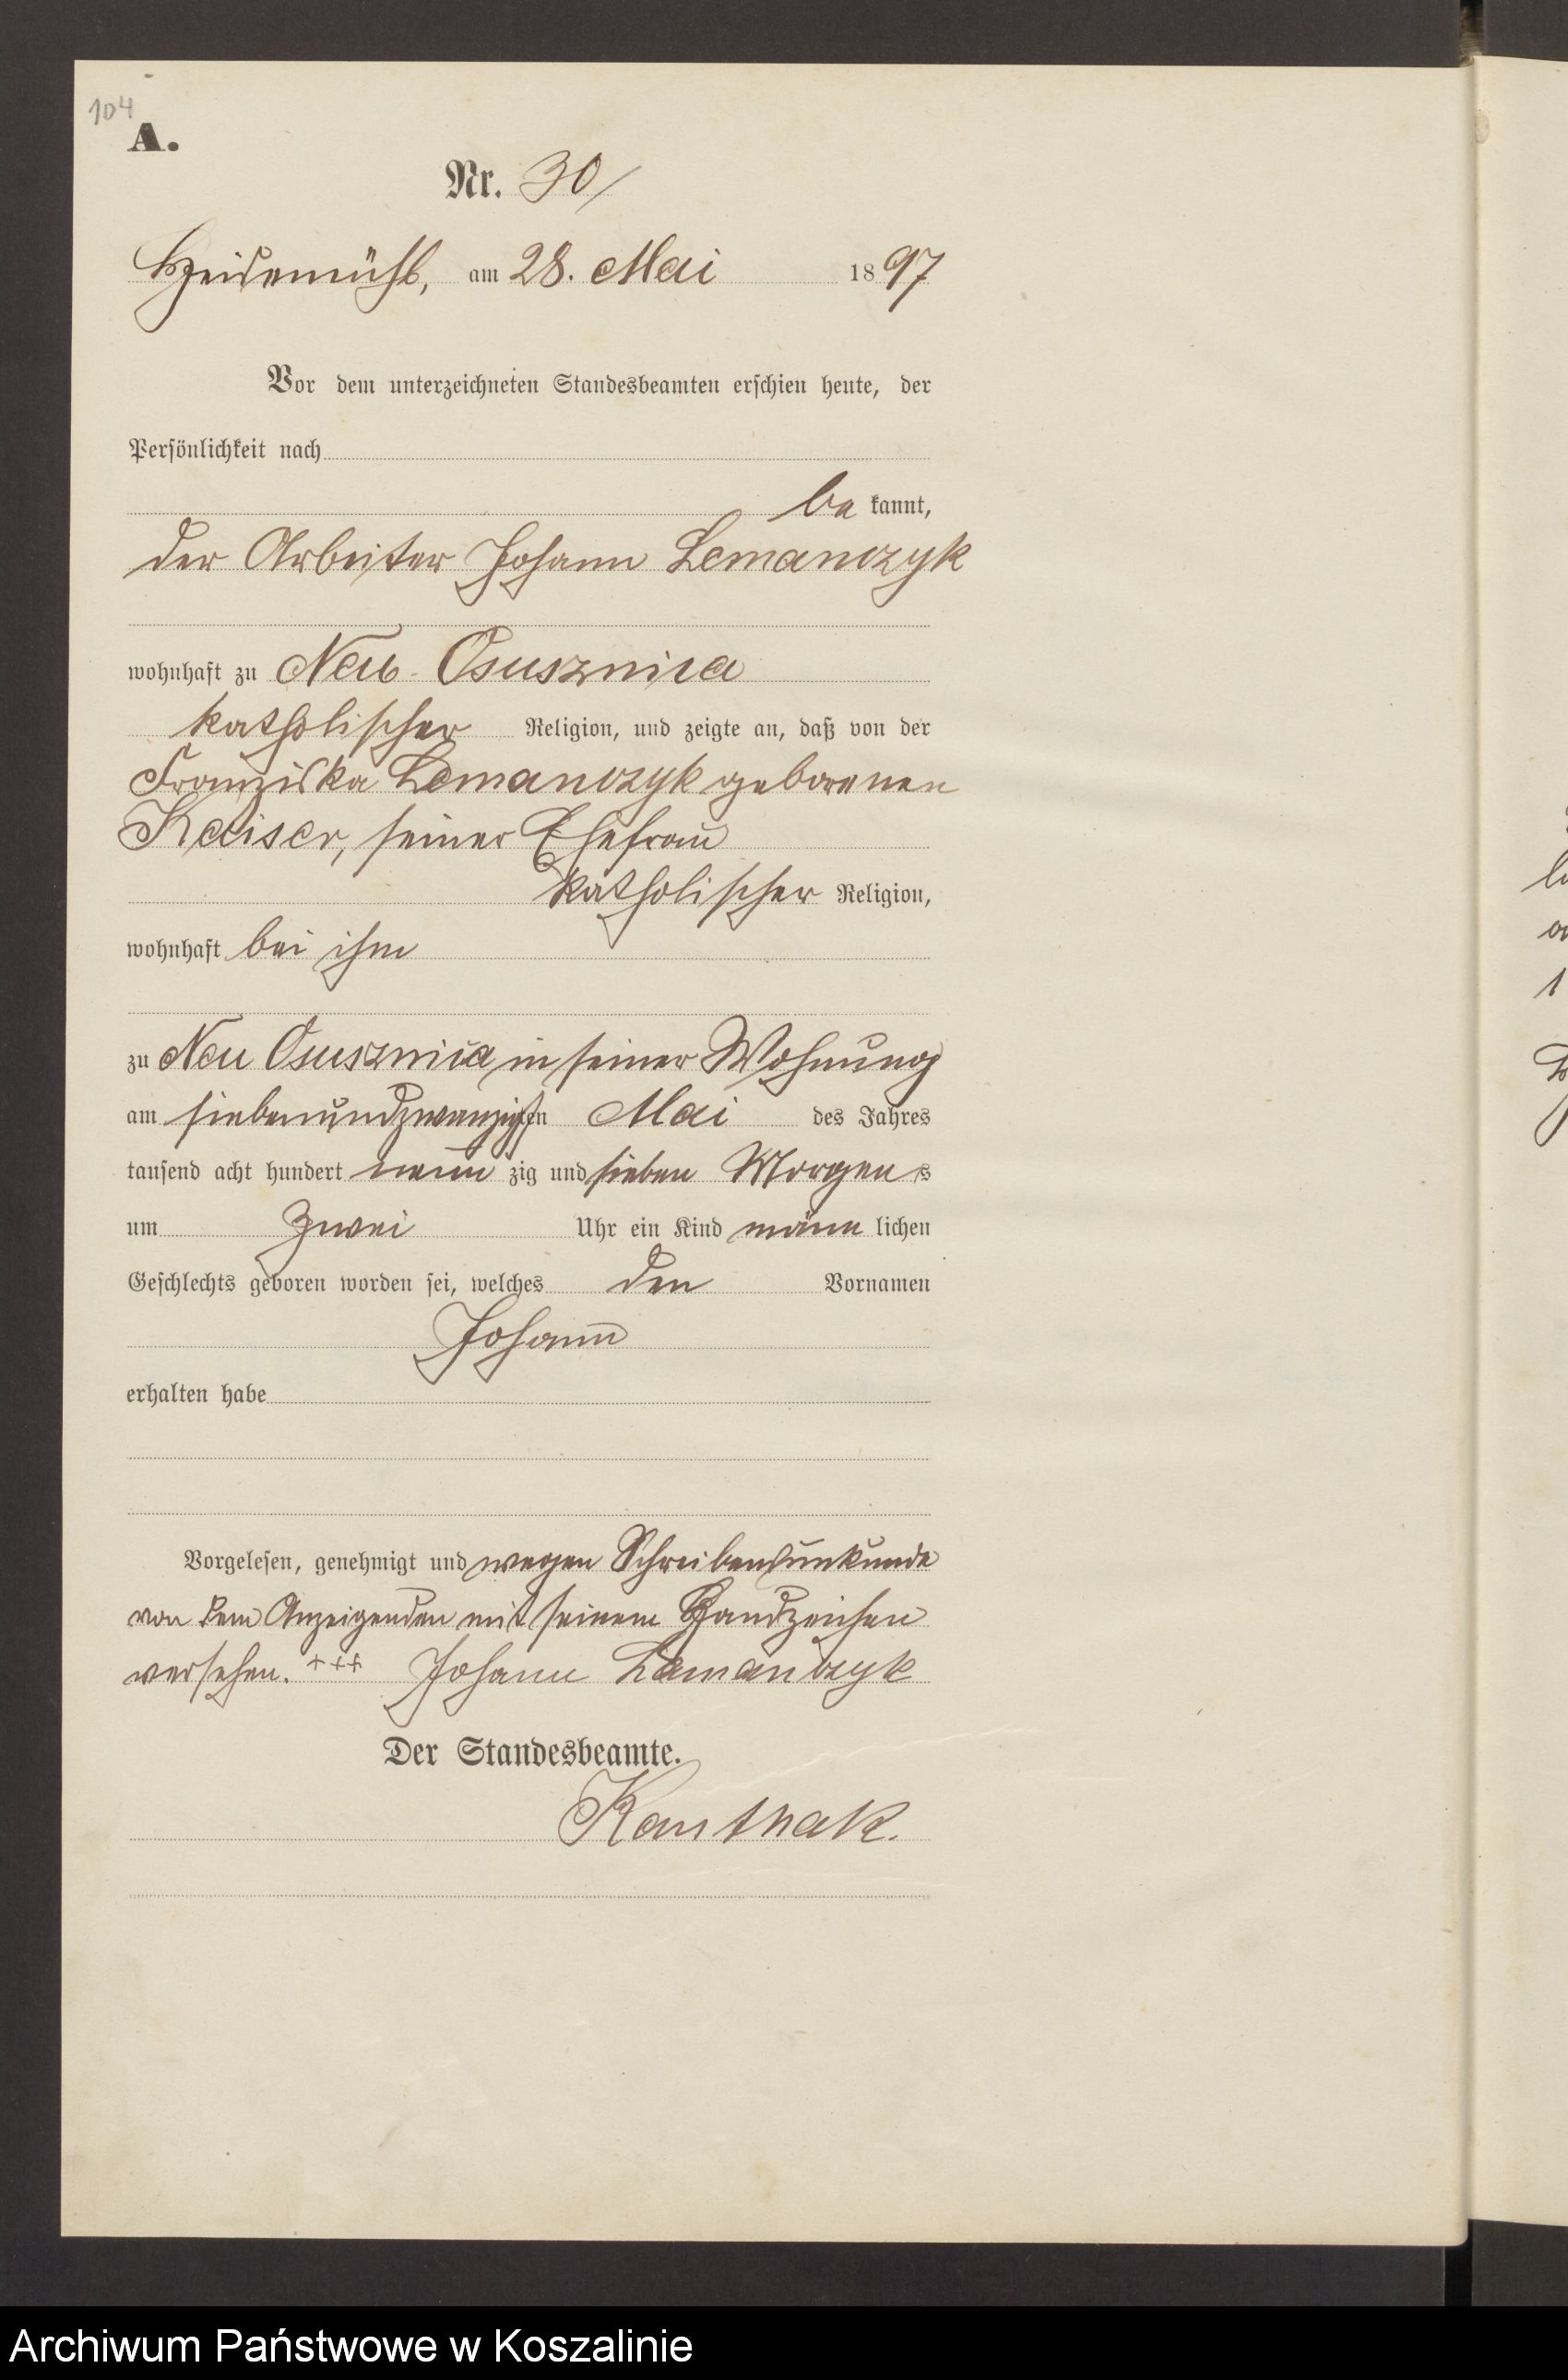 104
A.
Nr. 30
Heidemühl, am 28. Mai 1897
Vor dem unterzeichneten Standesbeamten erschien heute, der
Persönlichkeit nach
be kannt,
der Arbeiter Johann Lemanczyk
wohnhaft zu Neu Osusznica
katholischer Religion, und zeigte an, daß von der
Franziska Lemanczyk geborenen
Kaiser, seiner Ehefrau
katholischer Religion,
wohnhaft bei ihm
zu Neu Osusznica in seiner Wohnung
am siebenundzwanzigsten Mai des Jahres
tausend acht hundert neun zig und sieben Morgens
um zwei Uhr ein Kind männ lichen
Geschlechts geboren worden sei, welches den Vornamen
Johann
erhalten habe
Vorgelesen, genehmigt und wegen Schreibensunkunde
von dem Anzeigenden mit seinem Handzeichen
versehen. +++ Johann Lemanczyk
Der Standesbeamte.
Archiwum Państwowe w Koszalinie